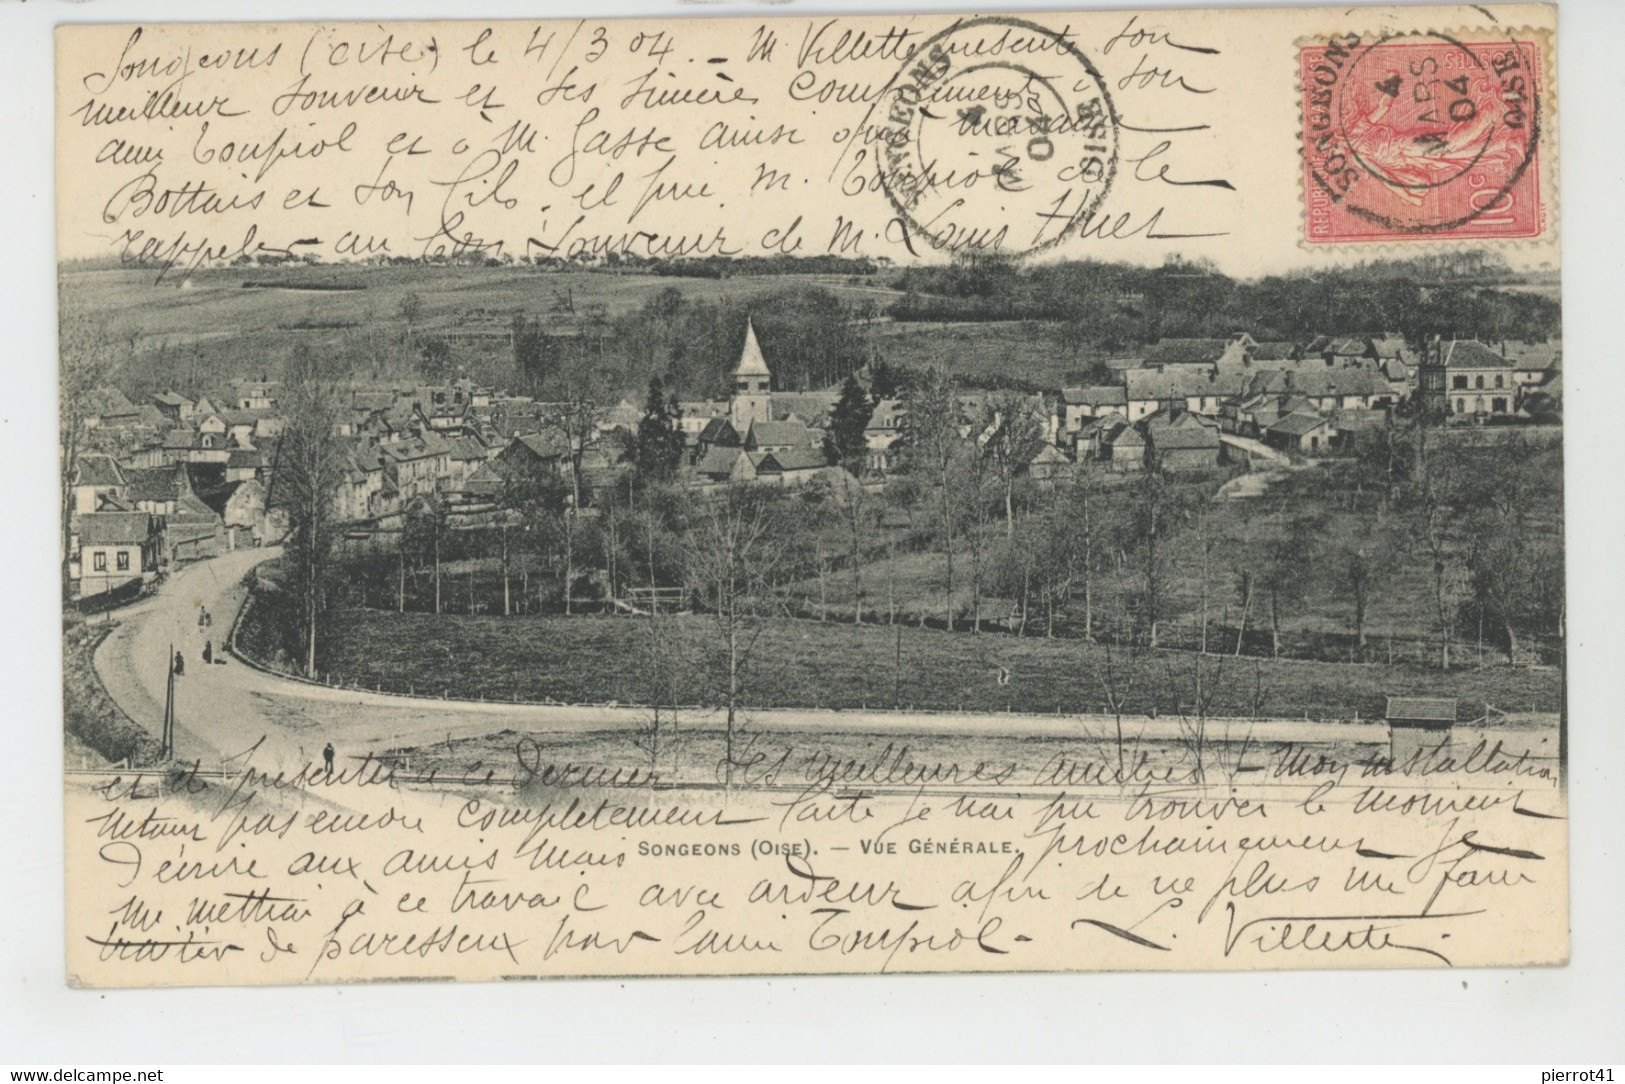 Songeons (oise) le 4/3 04 – M. Villette présente son
meilleur souvenir et ses sincères compliments à son
ami Toupiol et à M. Gasse ainsi
Bottais et son fils. il prie M. Toupiol de le
rappeler au bon souvenir de M. Louis Huet
SONGEONS
OISE
4
MARS
04
SONGEONS
OISE
4
MARS
04
10c
et de présenter à ce dernier ses meilleures amitiés – Mon installation
n'étant pas encore complètement faite je n'ai pu trouver le moment
d'écrire aux amis mais prochainement je
SONGEONS (OISE). — VUE GÉNÉRALE.
me mettrai à ce travail avec ardeur afin de ne plus me faire
traiter de paresseux par l'ami Toupiol – L. Villette.
pierrot41